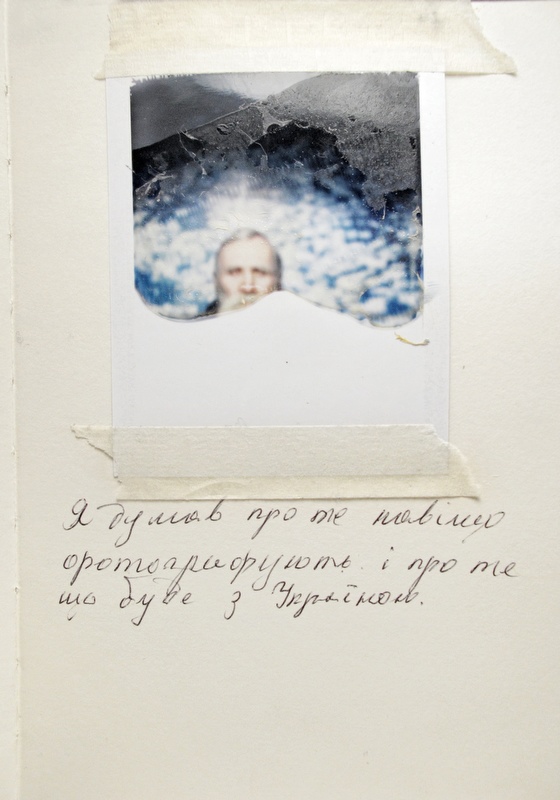 Я думав про те навіщо
фотографують. і про те
що буде з Україною.